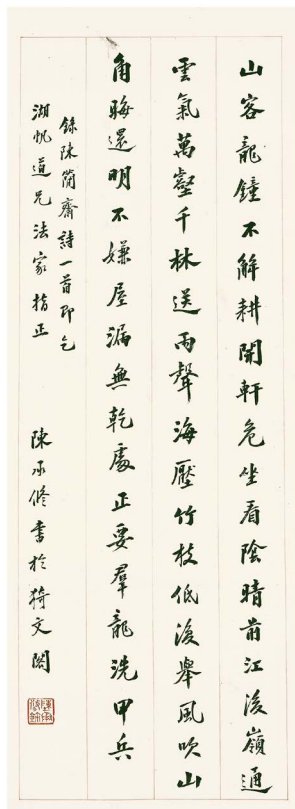 山客龍鍾不解耕開軒危坐看陰晴前江後嶺通
雲氣萬壑千林送雨聲海壓竹枝低復舉風吹山
角晦還明不嫌屋漏無乾處正要羣龍洗甲兵
錄陳簡齋詩一首即乞
湖帆道兄法家指正
陳承修書於猗文閣